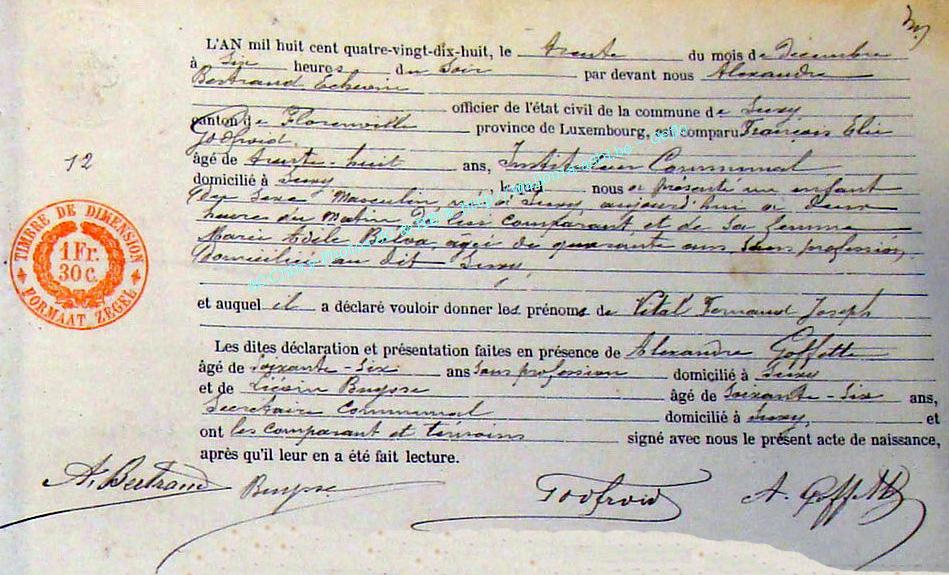 L'AN mil huit cent quatre-vingt-dix-huit, le trente du mois de décembre
à six heures du soir par devant nous Alexandre
Bertrand Echevin
officier de l'état civil de la commune de Suxy
canton de Florenville province de Luxembourg, est comparu François Elie
Godfroid
12
âgé de trente-huit ans, Instituteur Communal
domicilié à Suxy, lequel nous a présenté un enfant
du sexe Masculin, né à Suxy aujourd'hui à deux
heures du matin de lui comparant, et de sa femme
Marie Adèle Belva, âgée de quarante ans sans profession,
Domiciliée au dit Suxy,
et auquel il a déclaré vouloir donner les prénoms de Vital Fernand Joseph
Les dites déclaration et présentation faites en présence de Alexandre Goffette
âgé de soixante-six ans sans profession domicilié à Suxy
et de Buysse âgé de soixante-six ans,
Secrétaire Communal domicilié à Suxy, et
ont les comparant et témoins signé avec nous le présent acte de naissance,
après qu'il leur en a été fait lecture.
A. Bertrand Buysse Godfroid A. Goffette
TIMBRE DE DIMENSION
1 Fr.
30 C.
FORMAAT ZEGEL